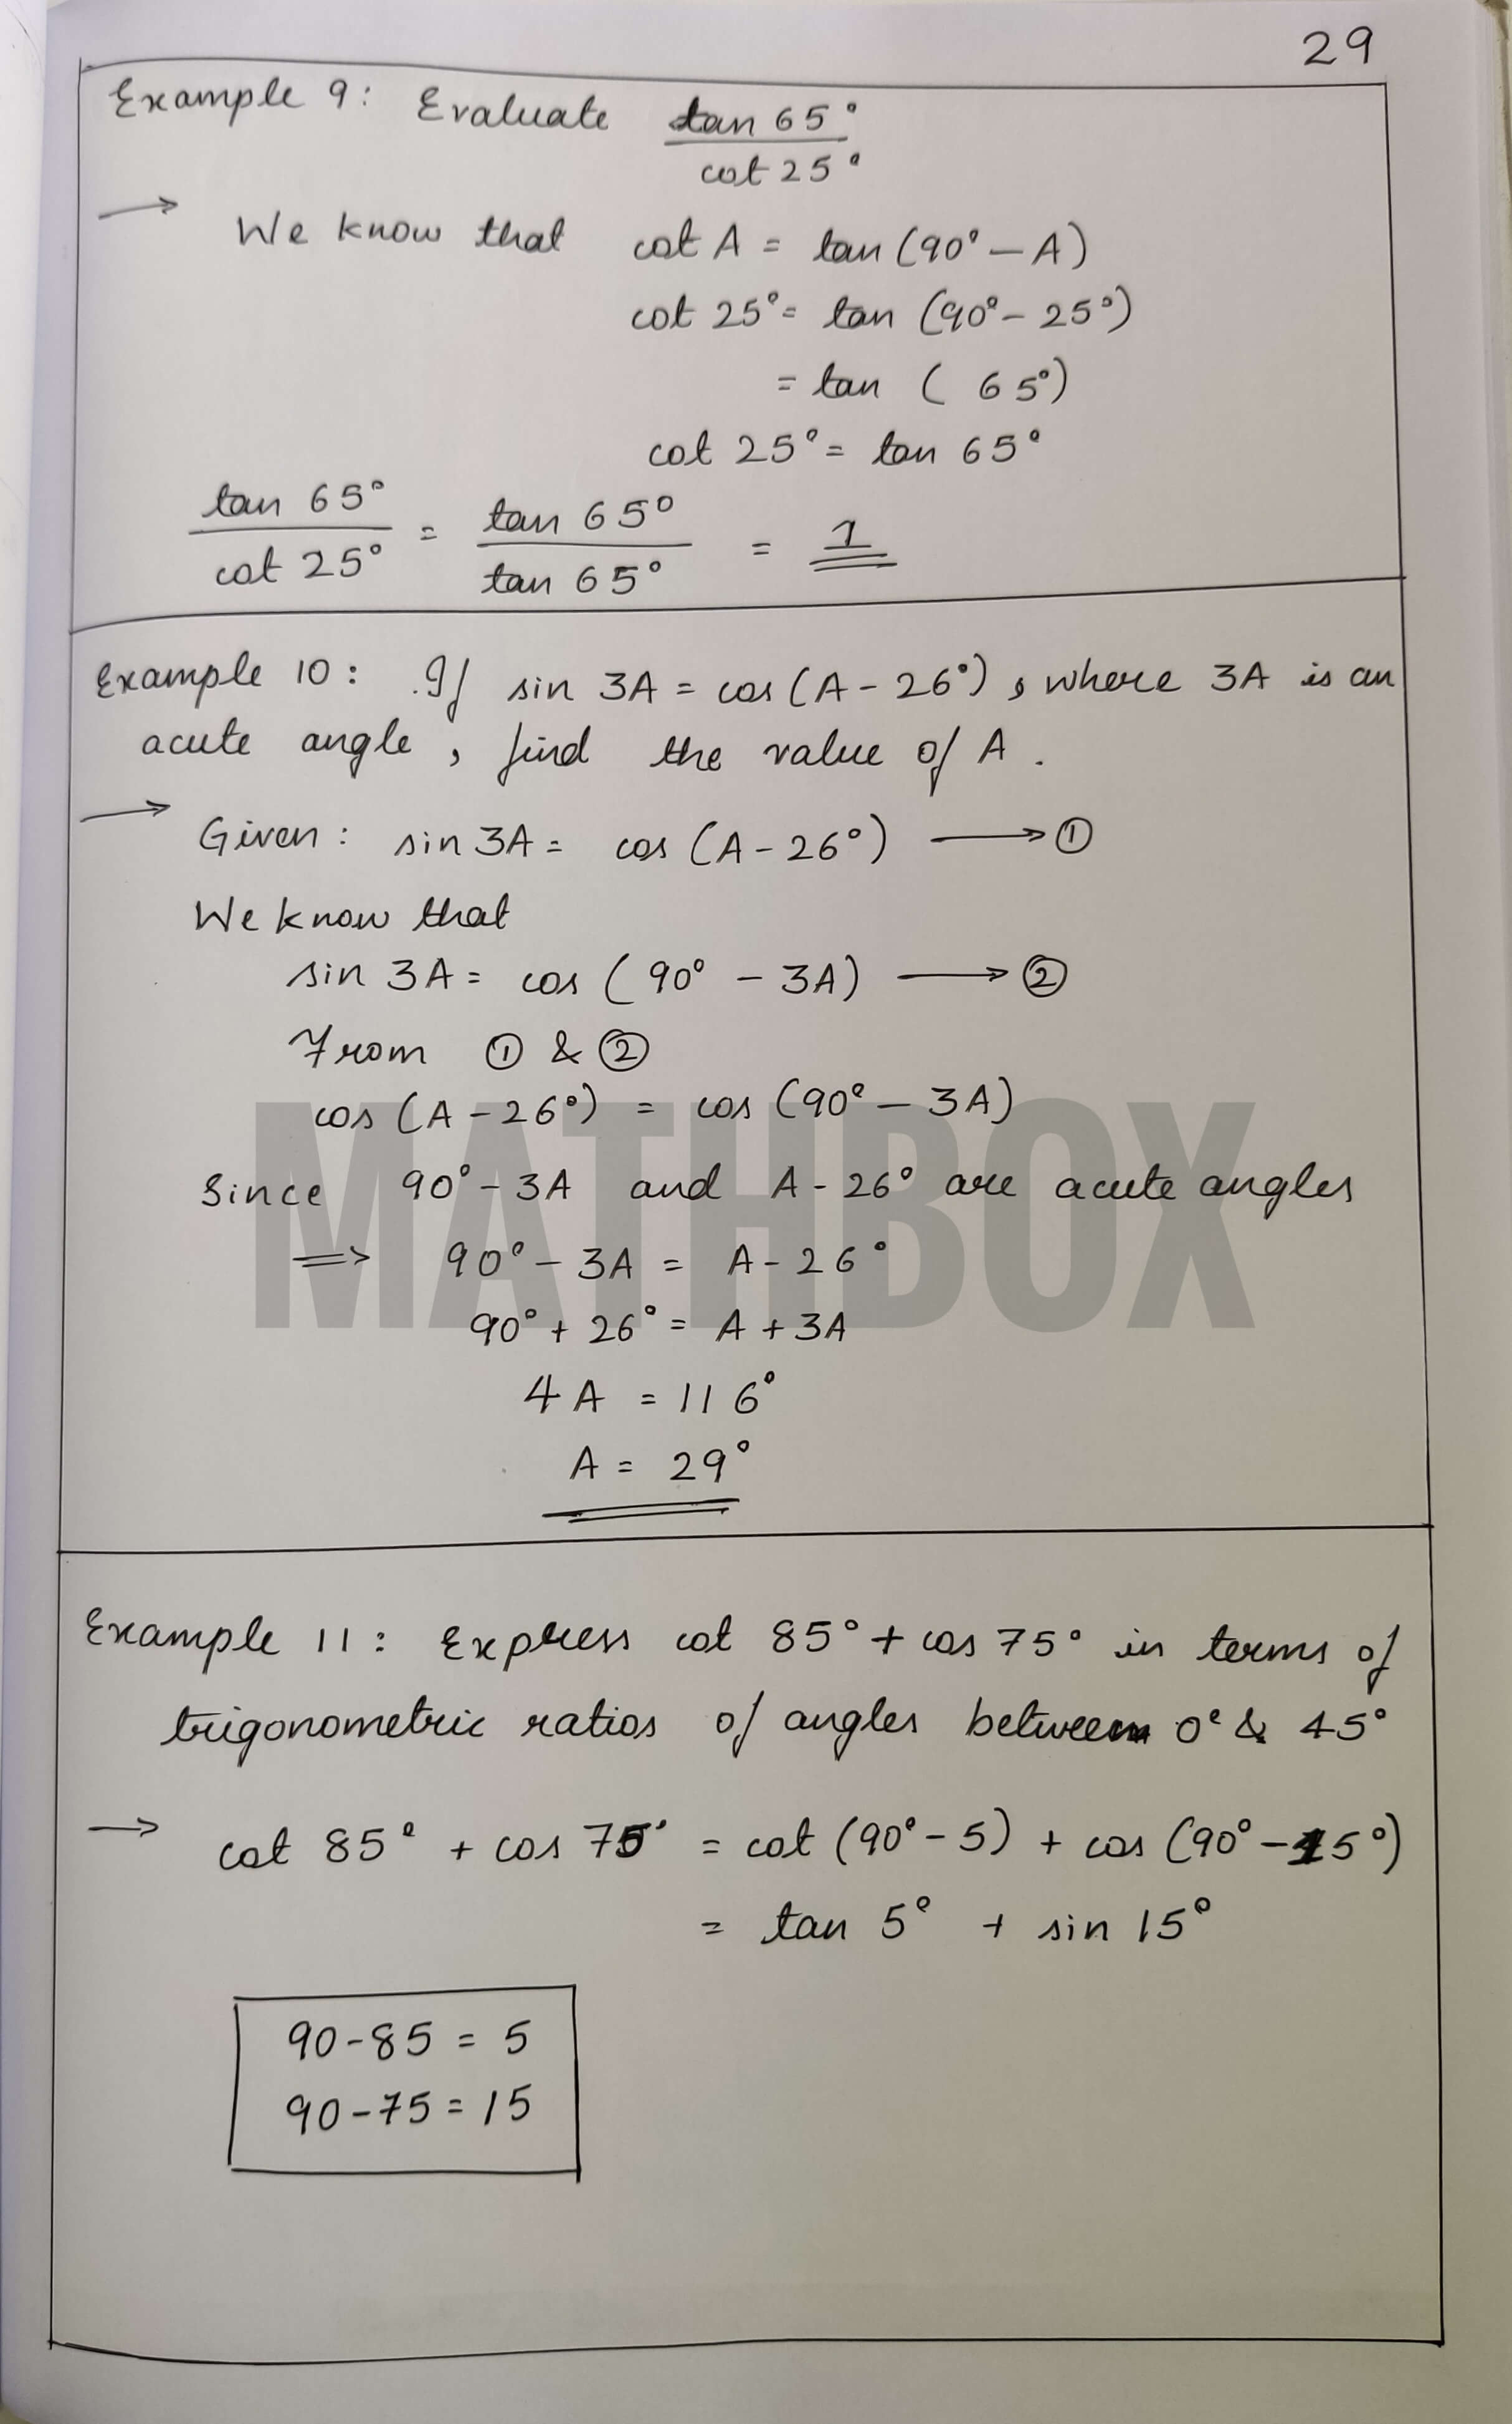 29
Example 9: Evaluate tan 65° / cot 25°
→ We know that cot A = tan (90° – A)
cot 25° = tan (90° – 25°)
= tan ( 65°)
cot 25° = tan 65°
tan 65° / cot 25° = tan 65° / tan 65° = 1
Example 10: If sin 3A = cos (A – 26°), where 3A is an
acute angle, find the value of A.
→ Given: sin 3A = cos (A – 26°) → ①
We know that
sin 3A = cos (90° – 3A) → ②
From ① & ②
cos (A – 26°) = cos (90° – 3A)
Since 90° – 3A and A – 26° are acute angles
⇒ 90° – 3A = A – 26°
90° + 26° = A + 3A
4A = 116°
A = 29°
MATHBOX
Example 11: Express cot 85° + cos 75° in terms of
trigonometric ratios of angles between 0° & 45°
→ cot 85° + cos 75° = cot (90° – 5) + cos (90° – 15°)
= tan 5° + sin 15°
90 – 85 = 5
90 – 75 = 15